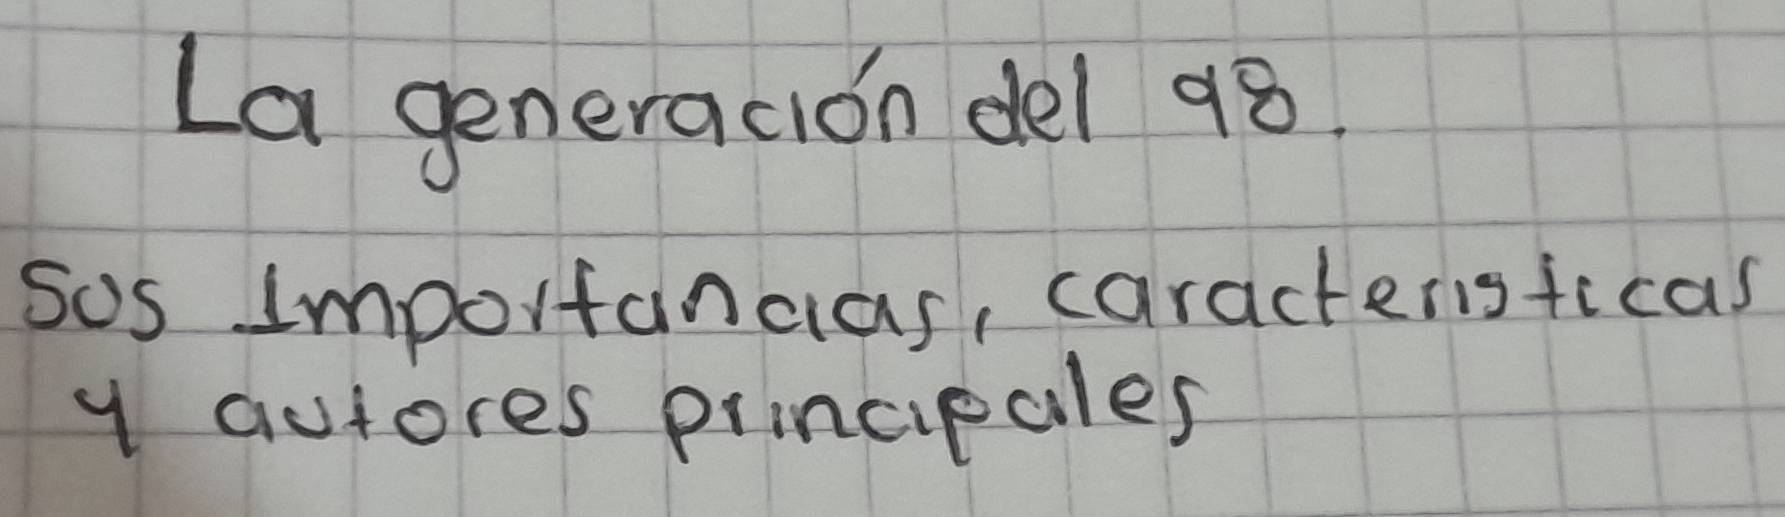 La generación del 98.
sus Importancias, caracteristicas
y autores principales